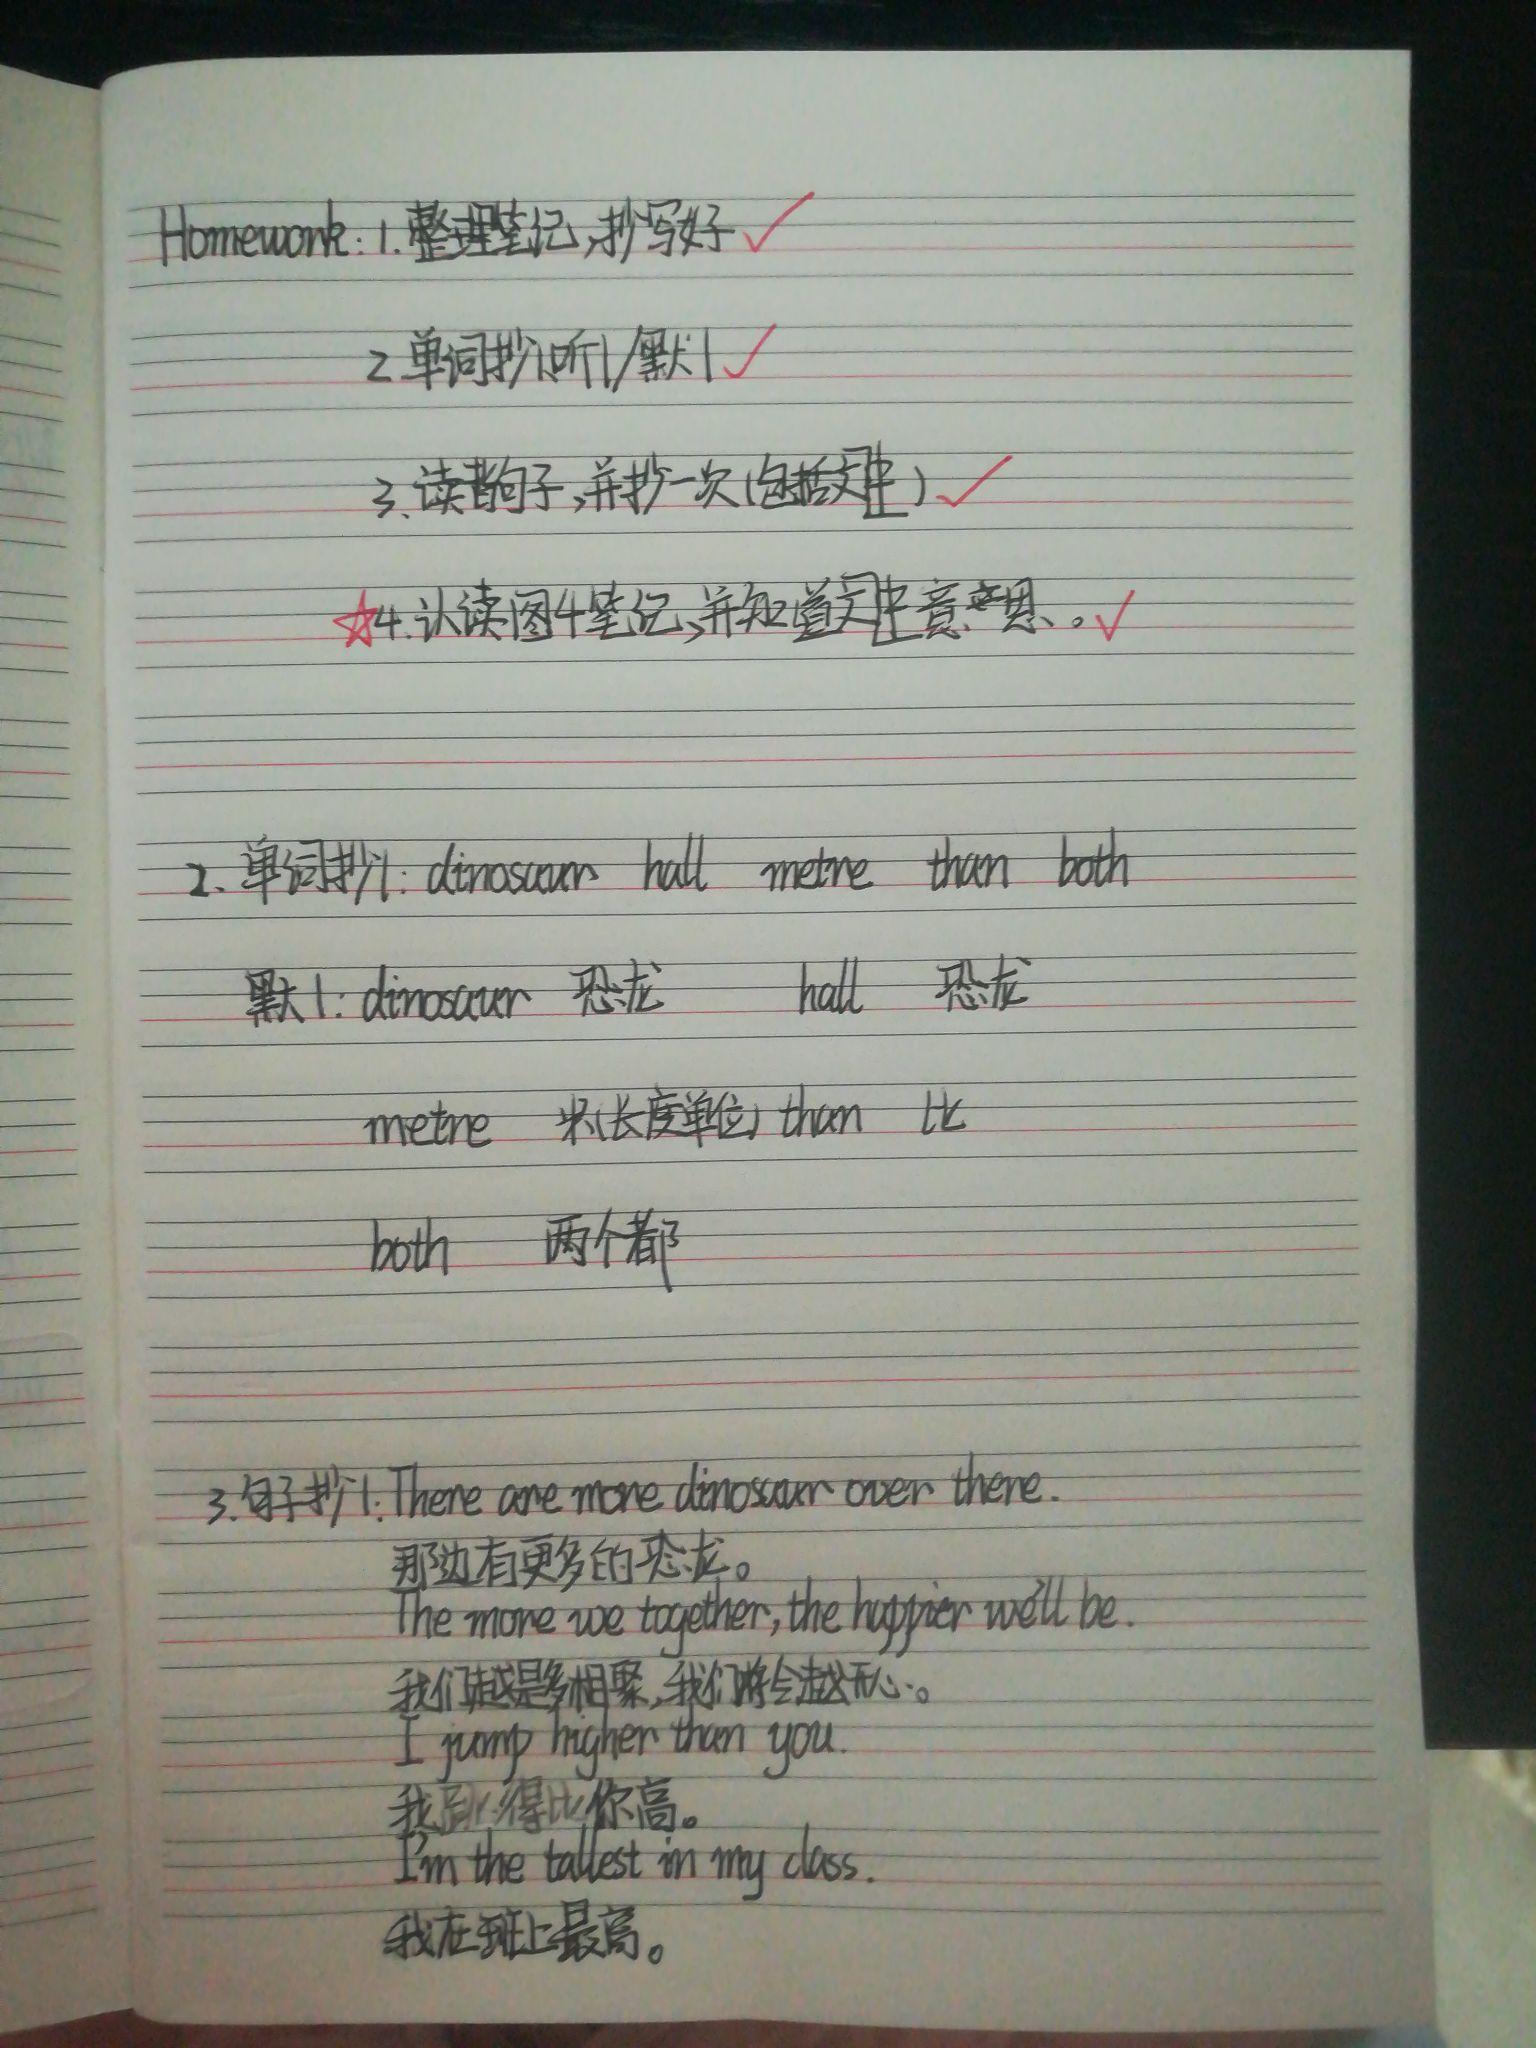 Homework: 1. 整理笔记,抄写好
2 单词抄1听1/默1
3. 读背句子,并抄一次(包括文中)
☆4.认读图4笔记,并知道文中意思。
2. 单词抄1: dinosaur hall metre than both
默1: dinosaur 恐龙 hall 恐龙
metre 米(长度单位) than 比
both 两个都
3. 句子抄1: There are more dinosaur over there.
那边有更多的恐龙。
The more we together, the happier we'll be.
我们越是多相聚,我们将会越开心。
I jump higher than you.
我跳得比你高。
I'm the tallest in my class.
我在班上最高。